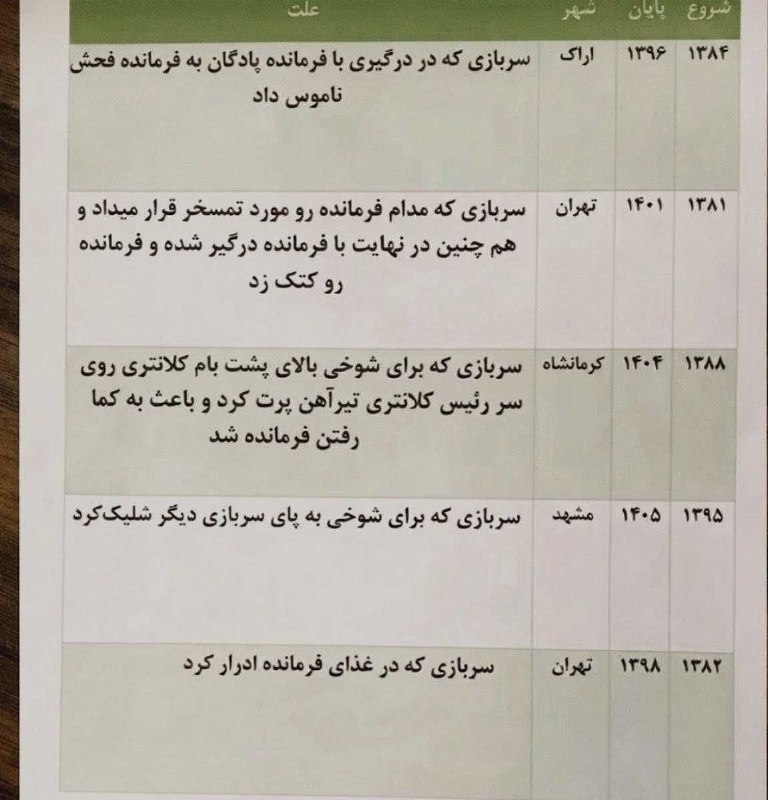 شروع پایان شهر علت
۱۳۸۴ ۱۳۹۶ اراک سربازی که در درگیری با فرمانده پادگان به فرمانده فحش
ناموس داد
۱۳۸۱ ۱۴۰۱ تهران سربازی که مدام فرمانده رو مورد تمسخر قرار میداد و
هم چنین در نهایت با فرمانده درگیر شده و فرمانده
رو کتک زد
۱۳۸۸ ۱۴۰۴ کرمانشاه سربازی که برای شوخی بالای پشت بام کلانتری روی
سر رئیس کلانتری تیرآهن پرت کرد و باعث به کما
رفتن فرمانده شد
۱۳۹۵ ۱۴۰۵ مشهد سربازی که برای شوخی به پای سربازی دیگر شلیک‌کرد
۱۳۸۲ ۱۳۹۸ تهران سربازی که در غذای فرمانده ادرار کرد